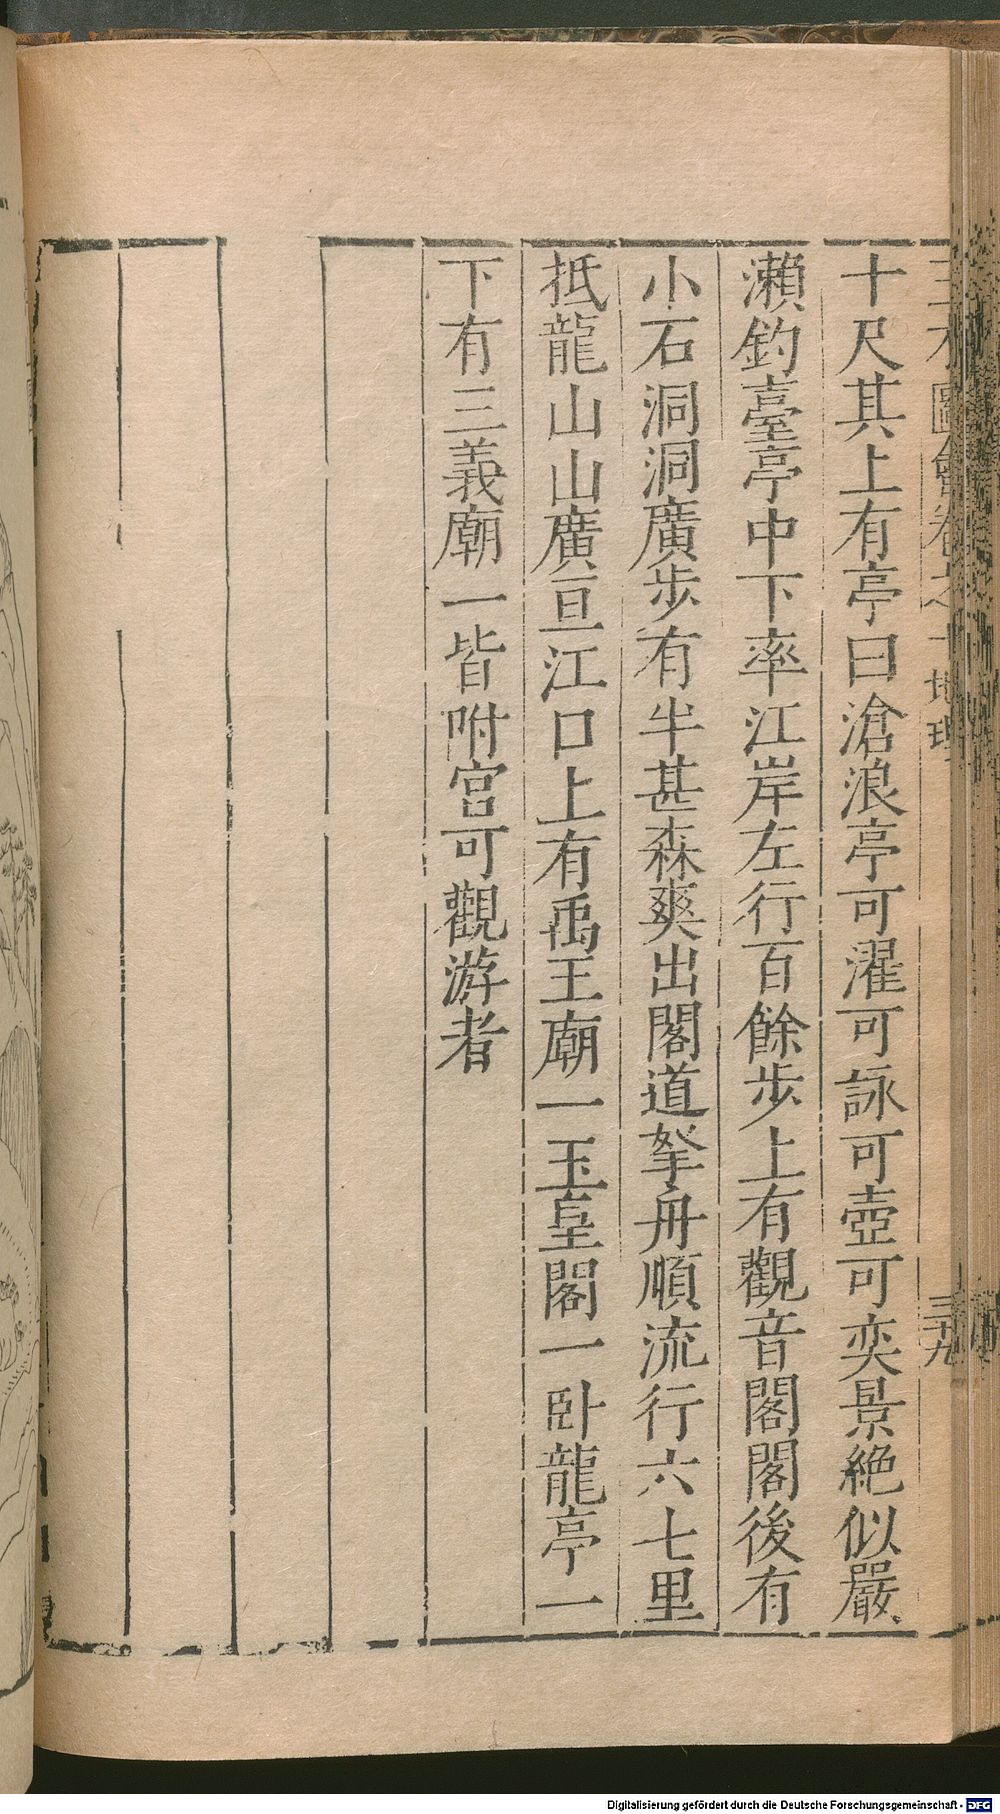 圖會卷之十 地理 三十九
十尺其上有亭曰滄浪亭可濯可詠可壺可奕景絶似嚴
瀨釣臺亭中下率江岸左行百餘步上有觀音閣閣後有
小石洞洞廣步有半甚森爽出閣道拏舟順流行六七里
抵龍山山廣亘江口上有禹王廟一玉皇閣一卧龍亭一
下有三義廟一皆附宮可觀游者
Digitalisierung gefördert durch die Deutsche Forschungsgemeinschaft - DFG